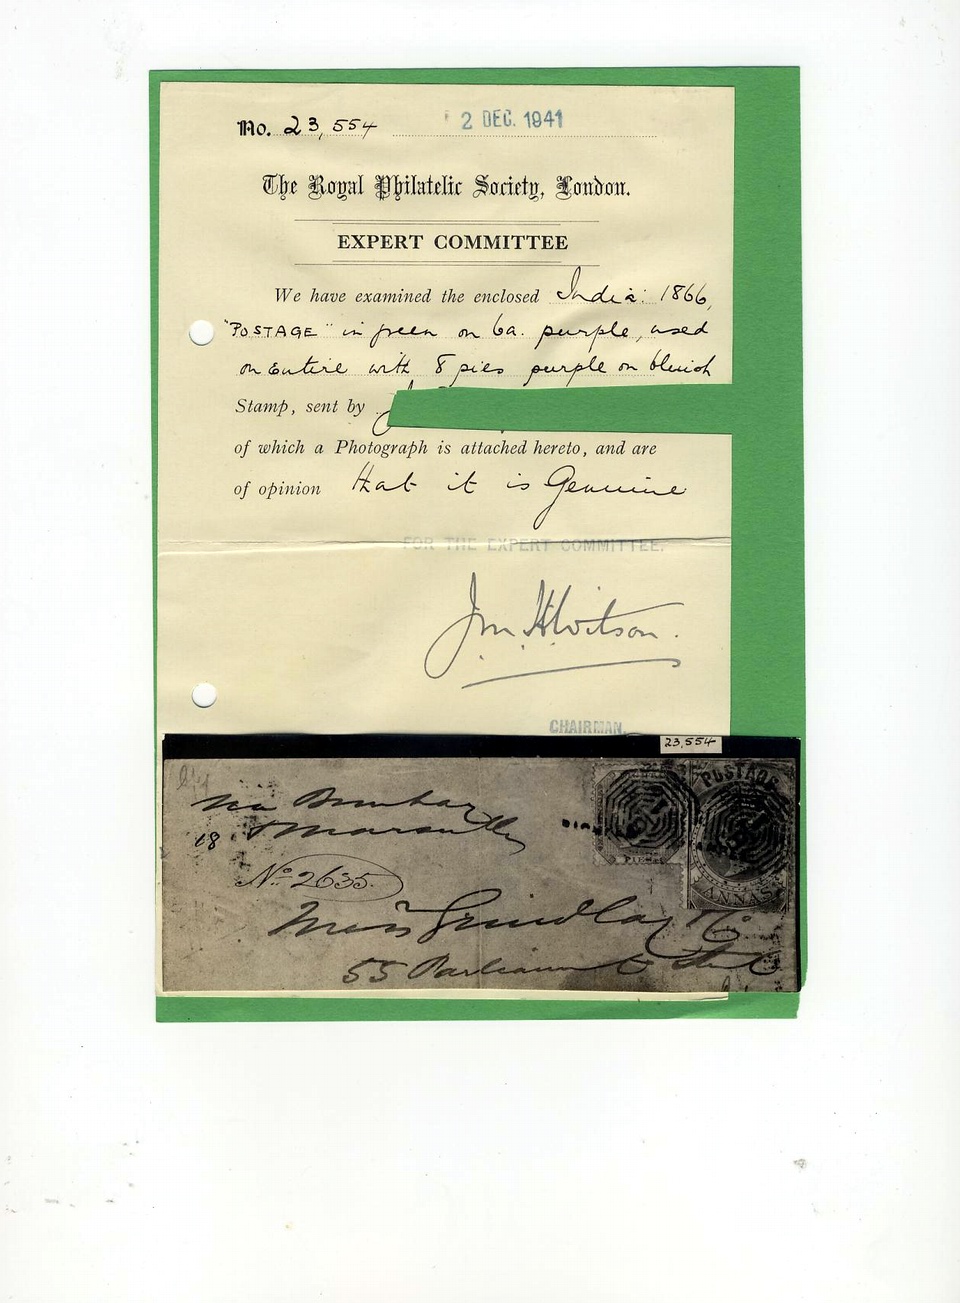 No. 23,554 2 DEC. 1941
The Royal Philatelic Society, London.
EXPERT COMMITTEE
We have examined the enclosed India: 1866,
"POSTAGE" in green on 6a. purple, used
on entire with 8 pies purple on bluish
Stamp, sent by
of which a Photograph is attached hereto, and are
of opinion that it is Genuine
FOR THE EXPERT COMMITTEE.
CHAIRMAN.
23,554
Via Bombay
18 Marseilles
POSTAGE
PIES
No. 2635.
ANNAS
Messrs Grindlay & Co
55 Parliament Street